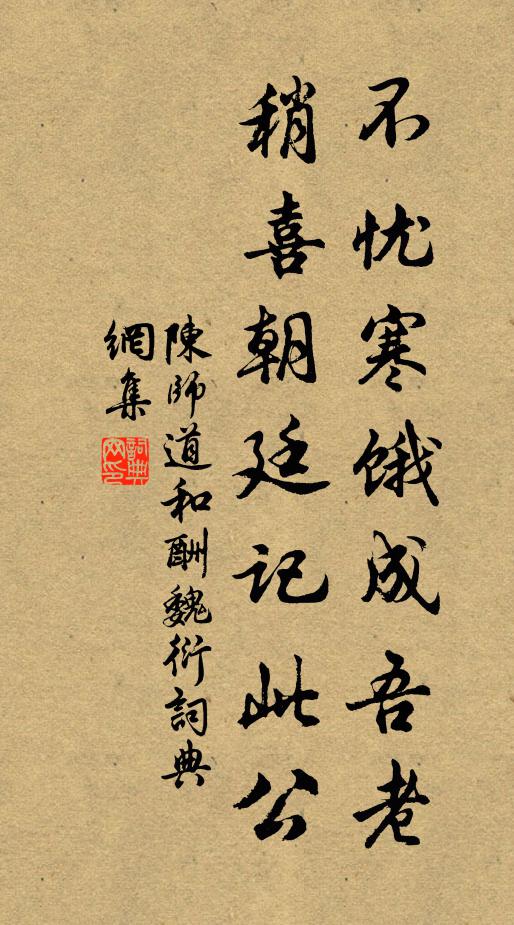 不忧寒饿成吾老
稍喜朝廷记此公
陳師道和酬魏衍詞典
網集
詞典
网印